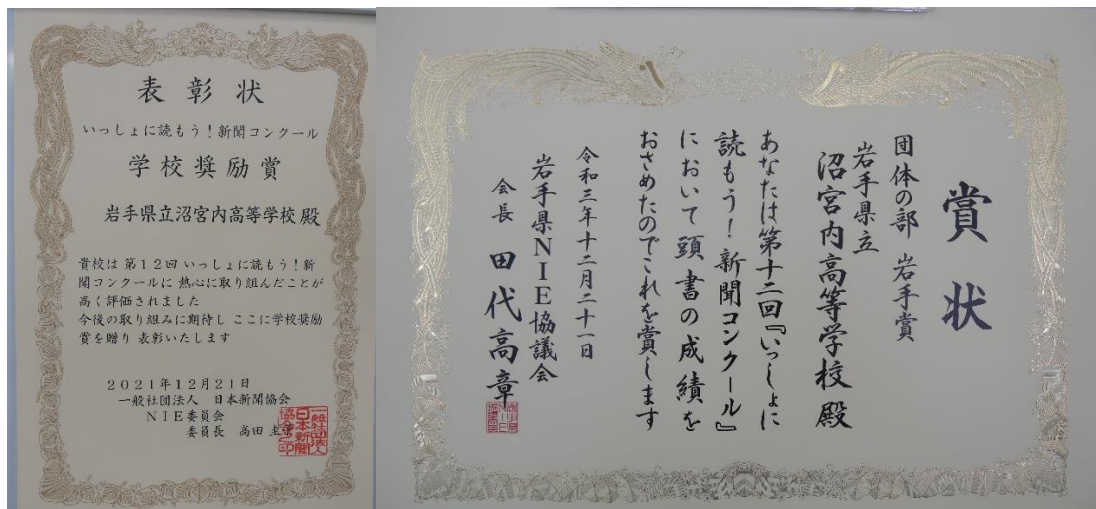 表彰状
いっしょに読もう！新聞コンクール
学校奨励賞
岩手県立沼宮内高等学校 殿
貴校は 第１２回 いっしょに読もう！新
聞コンクールに 熱心に取り組んだことが
高く評価されました
今後の取り組みに期待し ここに学校奨励
賞を贈り 表彰いたします
２０２１年１２月２１日
一般社団法人 日本新聞協会
ＮＩＥ委員会
委員長 高田 圭子
一般社団法人
日本新聞
協会之印
賞状
団体の部 岩手賞
岩手県立
沼宮内高等学校 殿
あなたは第十二回『いっしょに
読もう！新聞コンクール』
において頭書の成績を
おさめたのでこれを賞します
令和三年十二月二十一日
岩手県ＮＩＥ協議会
会長 田代高章